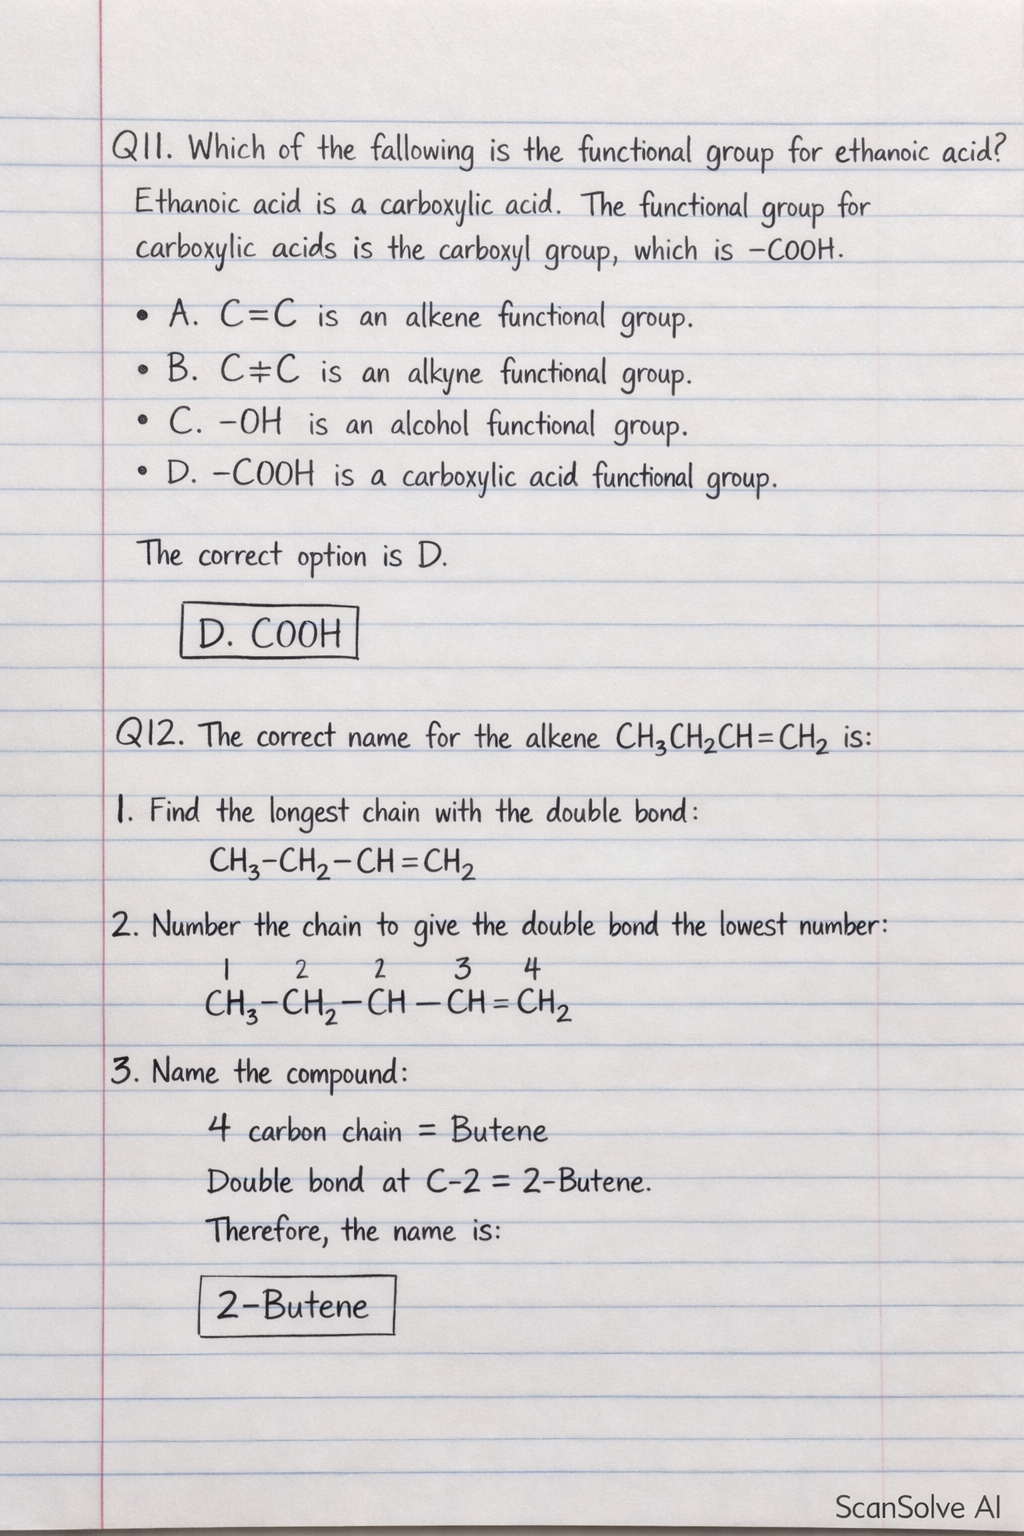 Q11. Which of the fallowing is the functional group for ethanoic acid?
Ethanoic acid is a carboxylic acid. The functional group for
carboxylic acids is the carboxyl group, which is -COOH.
• A. C=C is an alkene functional group.
• B. C‡C is an alkyne functional group.
• C. -OH is an alcohol functional group.
• D. -COOH is a carboxylic acid functional group.
The correct option is D.
D. COOH
Q12. The correct name for the alkene CH₃CH₂CH=CH₂ is:
1. Find the longest chain with the double bond:
CH₃-CH₂-CH=CH₂
2. Number the chain to give the double bond the lowest number:
1 2 2 3 4
CH₃-CH₂-CH-CH=CH₂
3. Name the compound:
4 carbon chain = Butene
Double bond at C-2 = 2-Butene.
Therefore, the name is:
2-Butene
ScanSolve AI